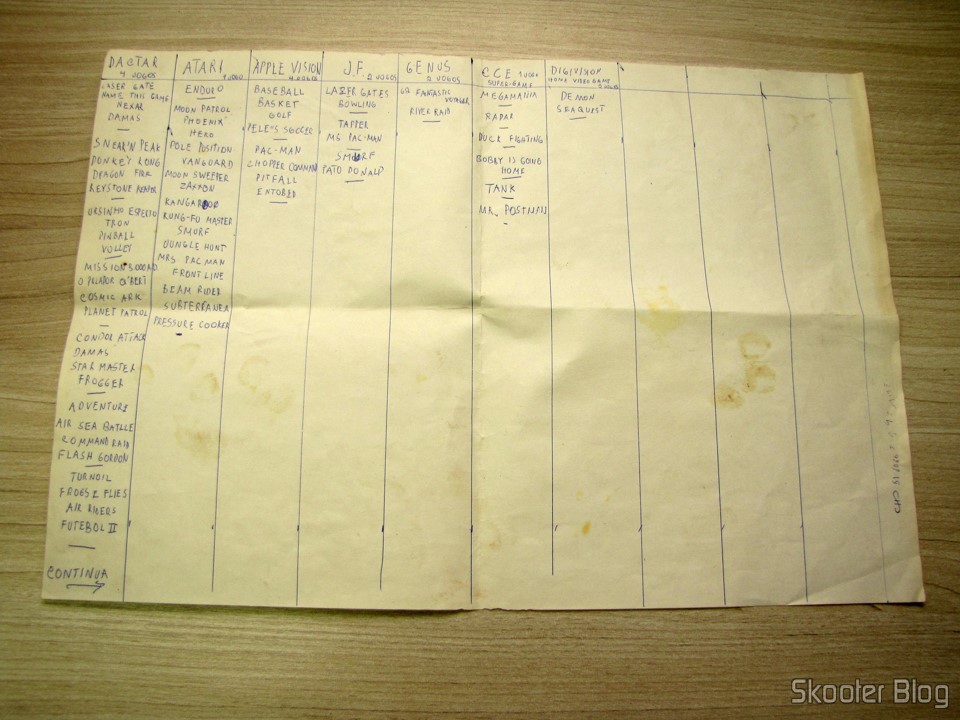 DACTAR
4 JOGOS
LASER GATE
NAME THIS GAME
NEKAR
DAMAS
SNEAK'N PEAK
DONKEY KONG
DRAGON FIRE
KEYSTONE KAPER
URSINHO ESPERTO
TRON
PINBALL
VOLLEY
MISSION 3.000 AD
O PULADOR Q'BERT
COSMIC ARK
PLANET PATROL
CONDOR ATTACK
DAMAS
STAR MASTER
FROGGER
ADVENTURE
AIR SEA BATLLE
COMMAND RAID
FLASH GORDON
TURNOIL
FROGS E FLIES
AIR RIDERS
FUTEBOL II
CONTINUA
ATARI
1 JOGO
ENDURO
MOON PATROL
PHOENIX
HERO
POLE POSITION
VANGUARD
MOON SWEEPER
ZAXXON
KANGAROO
KUNG-FU MASTER
SMURF
JUNGLE HUNT
MRS PAC MAN
FRONT LINE
BEAM RIDER
SUBTERRANEA
PRESSURE COOKER
APPLE VISION
4 JOGOS
BASEBALL
BASKET
GOLF
PELE'S SOCCER
PAC-MAN
CHOPPER COMMAND
PITFALL
ENTORED
J.F
2 JOGOS
LAZER GATES
BOWLING
TAPPER
MS PAC-MAN
SMURF
PATO DONALD
GENUS
2 JOGOS
FANTASTIC
VOYAGER
RIVER RAID
CCE 1 JOGO
SUPER-GAME
MEGAMANIA
RADAR
DUCK FIGHTING
BOBBY IS GOING
HOME
TANK
MR. POSTMAN
DIGIVISION
HOME VIDEO GAME
2 JOGOS
DEMON
SEAQUEST
Skooter Blog